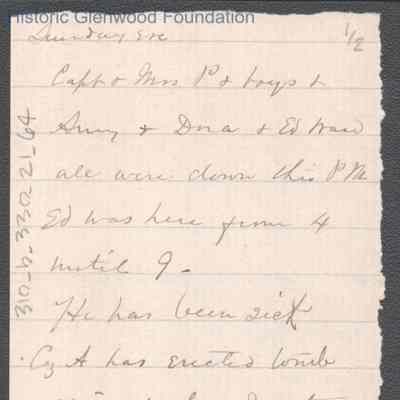 Historic Glenwood Foundation
Sunday Eve
1/2
Capt & Mrs P & boys &
& Dora & Ed
all were down this PM
Ed was here from 4
until 9 -
He has been sick
Cy A has erected tomb
310-h-330-21-64